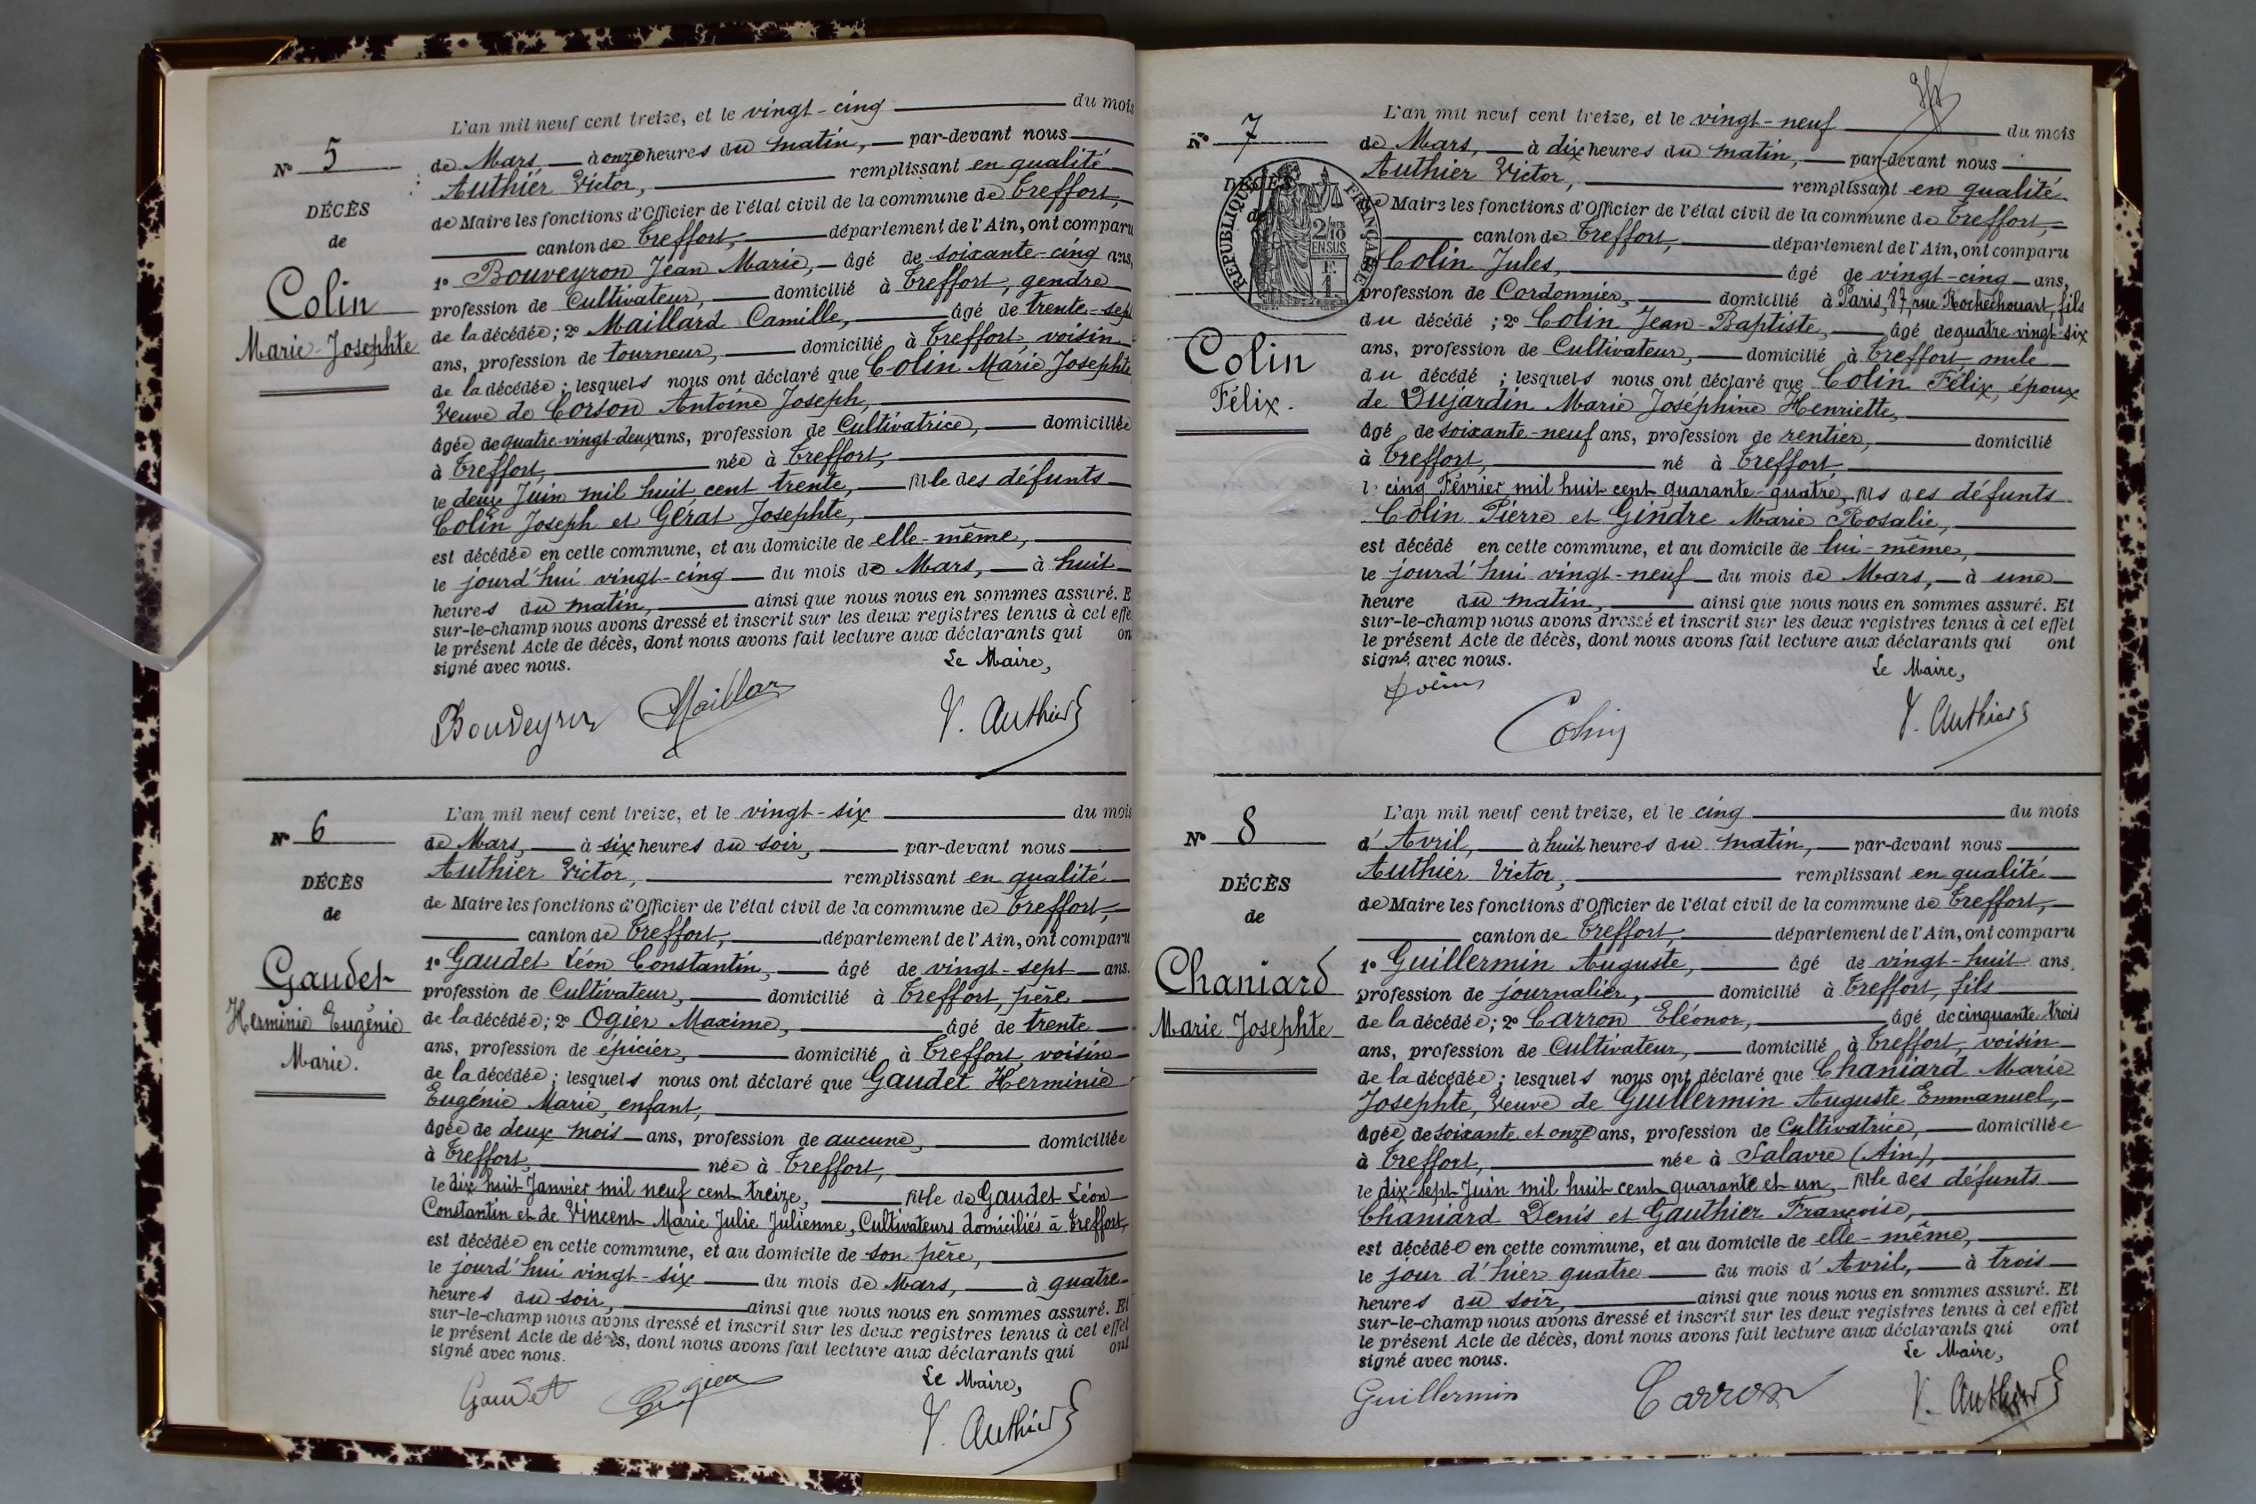 L'an mil neuf cent treize, et le vingt-cinq du mois
N° 5
de Mars à onze heures du matin, par-devant nous
Authier Victor, remplissant en qualité
DÉCÈS
de Maire les fonctions d'Officier de l'état civil de la commune de Treffort,
de
canton de Treffort, département de l'Ain, ont comparu
1° Bouveyron Jean Marie, âgé de soixante-cinq ans,
Colin
profession de Cultivateur, domicilié à Treffort, gendre
Marie-Josephte
de la décédée; 2° Maillard Camille, âgé de trente-sept
ans, profession de tourneur, domicilié à Treffort, voisin
de la décédée; lesquels nous ont déclaré que Colin Marie Josephte
Veuve de Corson Antoine Joseph,
âgée de quatre-vingt-deux ans, profession de Cultivatrice, domiciliée
à Treffort, née à Treffort,
le deux Juin mil huit cent trente, fille des défunts
Colin Joseph et Gerat Josephte,
est décédée en cette commune, et au domicile de elle-même,
le jourd'hui vingt-cinq du mois de Mars, à huit
heures du matin, ainsi que nous nous en sommes assuré. E
sur-le-champ nous avons dressé et inscrit sur les deux registres tenus à cet effe
le présent Acte de décès, dont nous avons fait lecture aux déclarants qui on
signé avec nous.
Le Maire,
Bouveyron Maillar V. Authier
L'an mil neuf cent treize, et le vingt-six du mois
N° 6
de Mars, à six heures du soir, par-devant nous
Authier Victor, remplissant en qualité
DÉCÈS
de Maire les fonctions d'Officier de l'état civil de la commune de Treffort,
de
canton de Treffort, département de l'Ain, ont comparu
1° Gaudet Léon Constantin, âgé de vingt-sept ans.
Gaudet
profession de Cultivateur, domicilié à Treffort, père
Herminie Eugénie
de la décédée; 2° Ogier Maxime, âgé de trente
ans, profession de épicier, domicilié à Treffort, voisin
Marie.
de la décédée; lesquels nous ont déclaré que Gaudet Herminie
Eugénie Marie, enfant,
âgée de deux mois ans, profession de aucune, domiciliée
à Treffort, née à Treffort,
le dix huit Janvier mil neuf cent treize, fille de Gaudet Léon
Constantin et de Vincent Marie Julie Julienne, Cultivateurs domiciliés à Treffort,
est décédée en cette commune, et au domicile de son père,
le jourd'hui vingt-six du mois de Mars, à quatre
heures du soir, ainsi que nous nous en sommes assuré. Et
sur-le-champ nous avons dressé et inscrit sur les deux registres tenus à cet effet
le présent Acte de décès, dont nous avons fait lecture aux déclarants qui ont
signé avec nous.
Le Maire,
Gaudet Ogier V. Authier
L'an mil neuf cent treize, et le vingt-neuf du mois
N° 7
de Mars, à dix heures du matin, par-devant nous
Authier Victor, remplissant en qualité
DÉCÈS
de Maire les fonctions d'Officier de l'état civil de la commune de Treffort,
de
RÉPUBLIQUE FRANÇAISE
2/10 EN SUS
F. 1
canton de Treffort, département de l'Ain, ont comparu
Colin Jules, âgé de vingt-cinq ans,
profession de Cordonnier, domicilié à Paris, 87, rue Rochechouart, fils
du décédé; 2° Colin Jean-Baptiste, âgé de quatre vingt-six
Colin
ans, profession de Cultivateur, domicilié à Treffort
du décédé; lesquels nous ont déclaré que Colin Félix, époux
Félix.
de Dujardin Marie Joséphine Henriette,
âgé de soixante-neuf ans, profession de rentier, domicilié
à Treffort, né à Treffort
le cinq Février mil huit cent quarante-quatre, fils des défunts
Colin Pierre et Gindre Marie Rosalie,
est décédé en cette commune, et au domicile de lui-même,
le jourd'hui vingt-neuf du mois de Mars, à une
heure du matin, ainsi que nous nous en sommes assuré. Et
sur-le-champ nous avons dressé et inscrit sur les deux registres tenus à cet effet
le présent Acte de décès, dont nous avons fait lecture aux déclarants qui ont
signé avec nous.
Le Maire,
Colin V. Authier
L'an mil neuf cent treize, et le cinq du mois
N° 8
d'Avril, à huit heures du matin, par-devant nous
Authier Victor, remplissant en qualité
DÉCÈS
de Maire les fonctions d'Officier de l'état civil de la commune de Treffort,
de
canton de Treffort, département de l'Ain, ont comparu
1° Guillermin Auguste, âgé de vingt-huit ans,
Chaniard
profession de journalier, domicilié à Treffort, fils
Marie Josephte
de la décédée; 2° Carron Eléonor, âgé de cinquante trois
ans, profession de Cultivateur, domicilié à Treffort, voisin
de la décédée; lesquels nous ont déclaré que Chaniard Marie
Josephte, Veuve de Guillermin Auguste Emmanuel,
âgée de soixante et onze ans, profession de Cultivatrice, domiciliée
à Treffort, née à Salavre (Ain),
le dix-sept Juin mil huit cent quarante et un, fille des défunts
Chaniard Denis et Gauthier Françoise,
est décédée en cette commune, et au domicile de elle-même,
le jour d'hier quatre du mois d'Avril, à trois
heures du soir, ainsi que nous nous en sommes assuré. Et
sur-le-champ nous avons dressé et inscrit sur les deux registres tenus à cet effet
le présent Acte de décès, dont nous avons fait lecture aux déclarants qui ont
signé avec nous.
Le Maire,
Guillermin Carron V. Authier